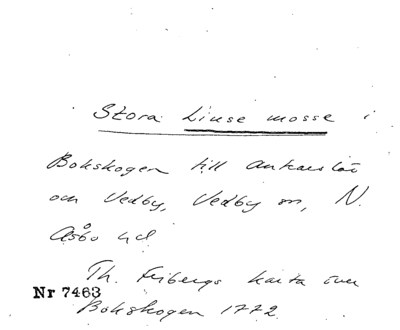 Stora Linse mosse i
Bokskogen till ankarstås
och Vedby, Vedby sn, N.
Åsbo hd
Th. Fribergs karta över
Nr 7463
Bokskogen 1772